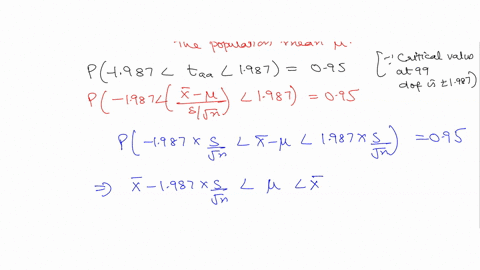 The population mean μ.
P(-1.987 < taa < 1.987) = 0.95 [∵ Critical value
at 99
dof is ±1.987)
P(-1.987 < (x̄-μ / s/√n) < 1.987) = 0.95
P(-1.987 × s/√n < x̄-μ < 1.987 × s/√n) = 0.95
⇒ x̄ - 1.987 × s/√n < μ < x̄